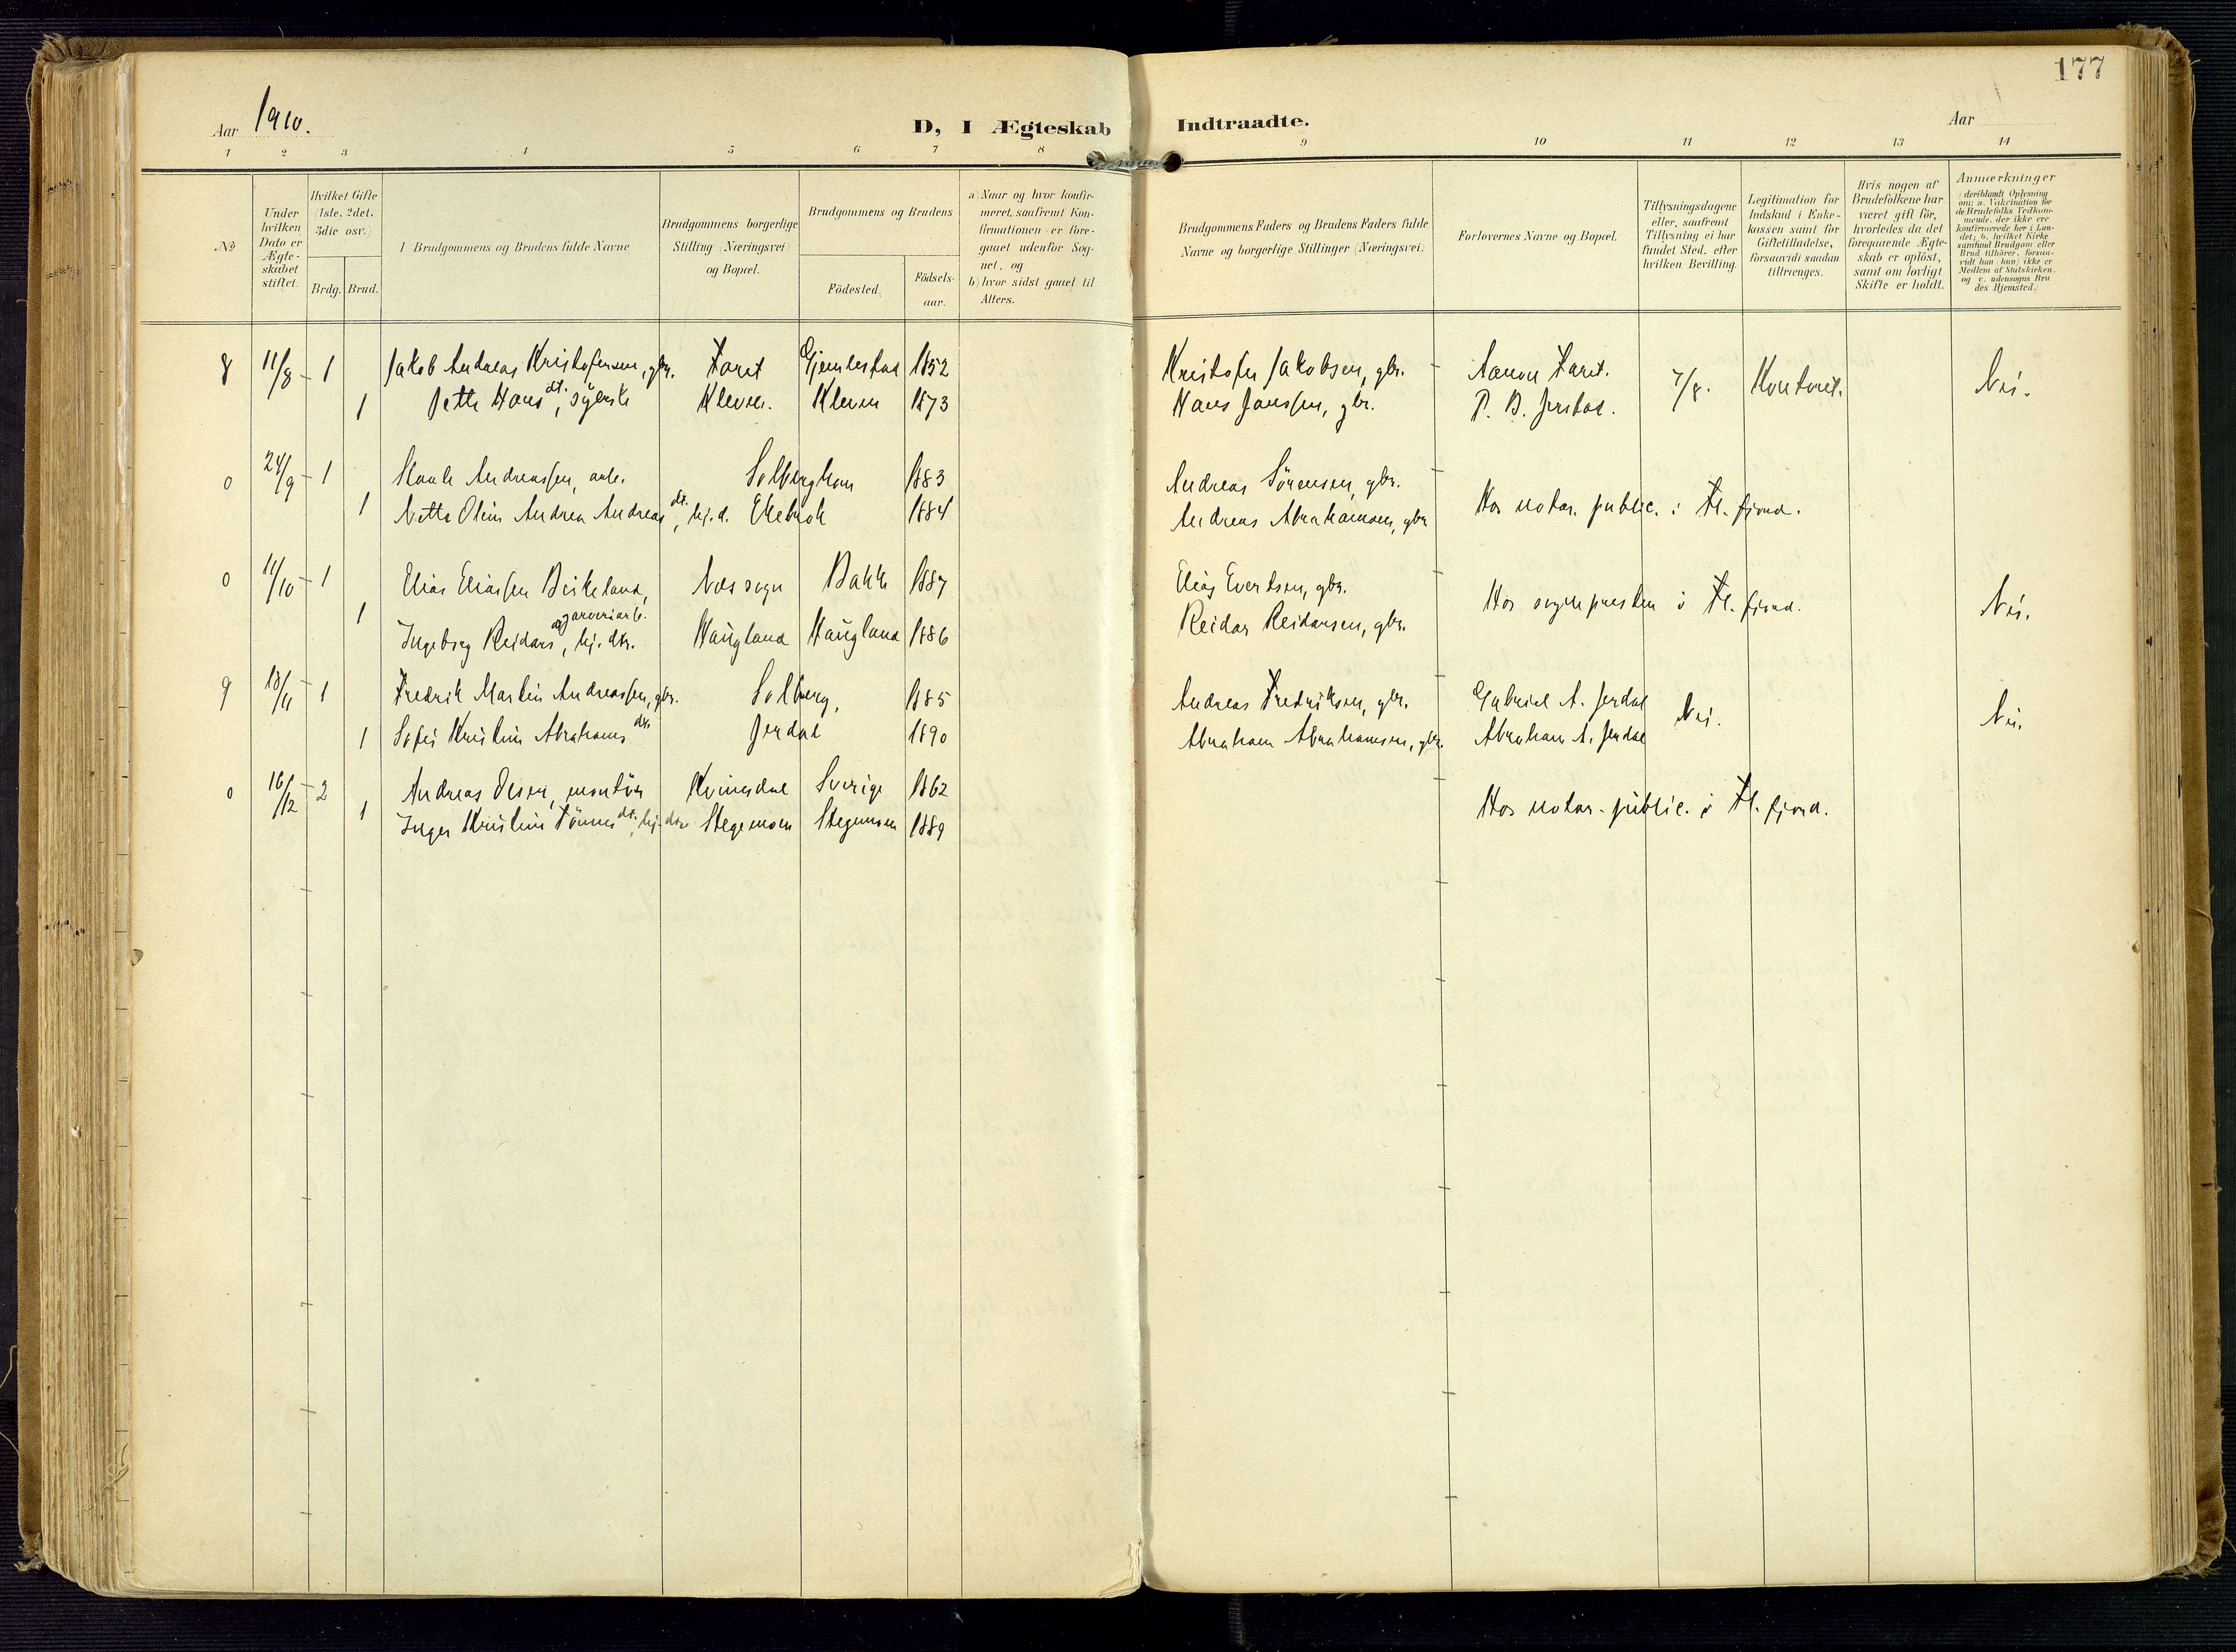 177
Aar 1910.
D, I Ægteskab Indtraadte.
Aar
1 2 3 4 5 6 7 8 9 10 11 12 13 14
No
Under hvilken Dato er Ægteskabet stiftet.
Hvilket Gifte (1ste. 2det. 3die osv.)
Brdg. Brud.
Brudgommens og Brudens fulde Navne
Brudgommens borgerlige Stilling (Næringsvei) og Bopæl.
Brudgommens og Brudens
Födested.
Födsels-aar.
a) Naar og hvor konfir-
meret, saafremt Kon-
firmationen er fore-
gaaet udenfor Sog-
net, og
b) hvor sidst gaaet til
Alters.
Brudgommens Faders og Brudens Faders fulde
Navne og borgerlige Stillinger (Næringsvei)
Forlovernes Navne og Bopæl.
Tillysningsdagene
eller, saafremt
Tillysning ei har
fundet Sted, efter
hvilken Bevilling.
Legitimation for
Indskud i Enke-
kassen samt for
Giftetilladelse,
forsaavidt saadan
tiltrænges.
Hvis nogen af
Brudefolkene har
været gift för,
hvorledes da det
foregaaende Ægte-
skab er oplöst,
samt om lovligt
Skifte er holdt.
Anmærkninger
(deriblandt Oplysning
om: a. Vakcination for
de Brudefolks Vedkom-
mende, der ikke ere
konfirmerede her i Lan-
det; b. hvilket Kirke
samfund Brudgom eller
Brud tilhörer, forsaa-
vidt han (hun) ikke er
Medlem af Statskirken.
og c. udensogns Bru
des Hjemsted.)
8 11/8 1 Jakob Andreas Kristofersen, gbr. Faret Gjemlestad 1852 Kristofer Jakobsen, gbr. Aanon Faret. 7/8. Kontrit. Nei.
1 Jette Hansdt., syerske Kleven. Kleven 1873 Hans Janssen, gbr. P. B. Jerstad.
0 24/9 1 Andreassen, arb. Solberghom 1883 Andreas Sörensen, gbr.
1 Nette Olin Andrea Andreasdt., hj.d. Ekebrok 1884 Andreas Abrahamsen, gbr. Hos notar. public. i Fl.fjord.
0 11/10 1 Elias Eliassen Birkeland, garveriarb. Næs sogn Bakke 1887 Elias Evertsen, gbr. Hos sognepresten i Fl.fjord. Nei.
1 Ingeborg Reidarsd, hj.dtr. Haugland Haugland 1886 Reidar Reidarsen, gbr.
9 18/11 1 Fredrik Martin Andreassen, gbr. Solberg, 1885 Andreas Fredriksen, gbr. Gabriel A. Jerdal Nei. Nei.
1 Sofie Kristine Abrahamsdtr. Jerdal 1890 Abraham Abrahamsen, gbr. Abraham A. Jerdal
0 16/12 2 Andreas Olsen, montör Kvinesdal Sverige 1862 Hos notar. public. i Fl.fjord.
1 Inger Kristine Tönnesdt., hj.dtr Stegemoen Stegemoen 1889